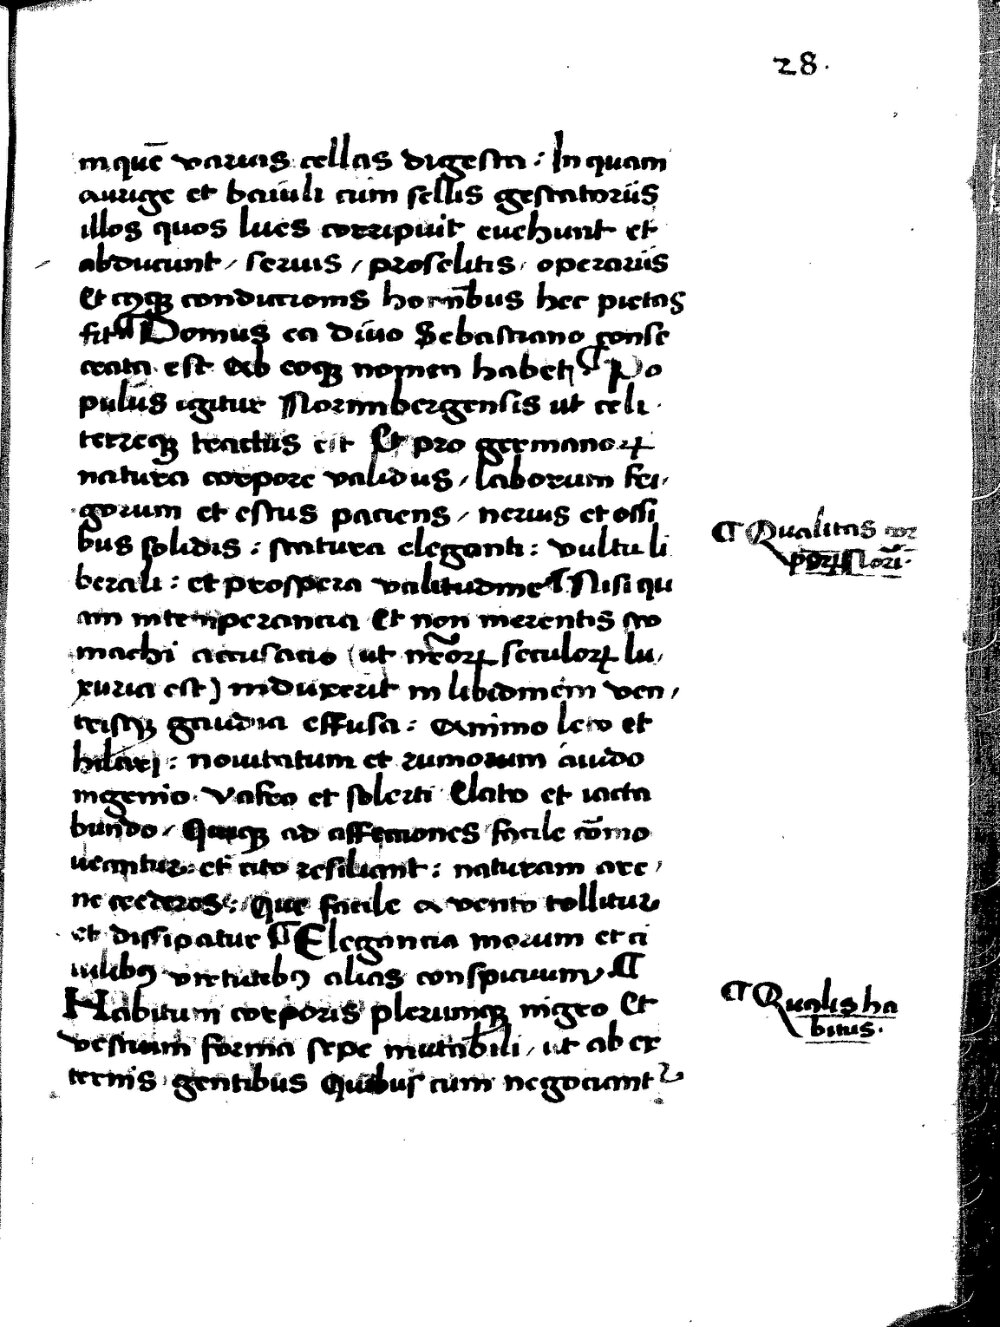 28.
inque varias cellas digesta: In quam
aurige et baiuli cum sellis gestatoriis
illos quos lues corripuit euehunt et
abducunt / seruis / proselitis, operariis
Et cuiusque conditionis hominibus hec pietas
fit ¶ Domus ea diuo Sebastiano conse
crata est Ab eoque nomen habet ¶ Po
pulus igitur Norinnbergensis ut celi
terreque tractus est Et pro germanorum
natura corpore validus / laborum fri/
gorum et estus paciens / neruis et ossi
bus solidis: statura eleganti: vultu li
berali: et prospera valitudine ¶ Nisi qu
am intemperancia Et non merentis sto
machi accusacio (ut nostrorum seculorum lu/
xuria est) induxerit in libidinem ven/
trisque gaudia effusa: Animo leto et
hilari: nouitatum et rumorum auido
ingenio. vafro et solerti Elato et iacta
bundo / Quique ad affectiones facile commo
ueantur et cito resiliant: naturam are/
ne
Que facile a vento tollitur
et dissipatur ¶ Elegancia morum et ci
uilibus virtutibus alias conspicuum ¶
Habitum corporis plerumque nigro Et
vestium forma sepe mutabili, ut ab ex
ternis gentibus Quibus cum negociant
¶ Qualitas cor
porum Nori.
¶ Qualis ha
bitus.